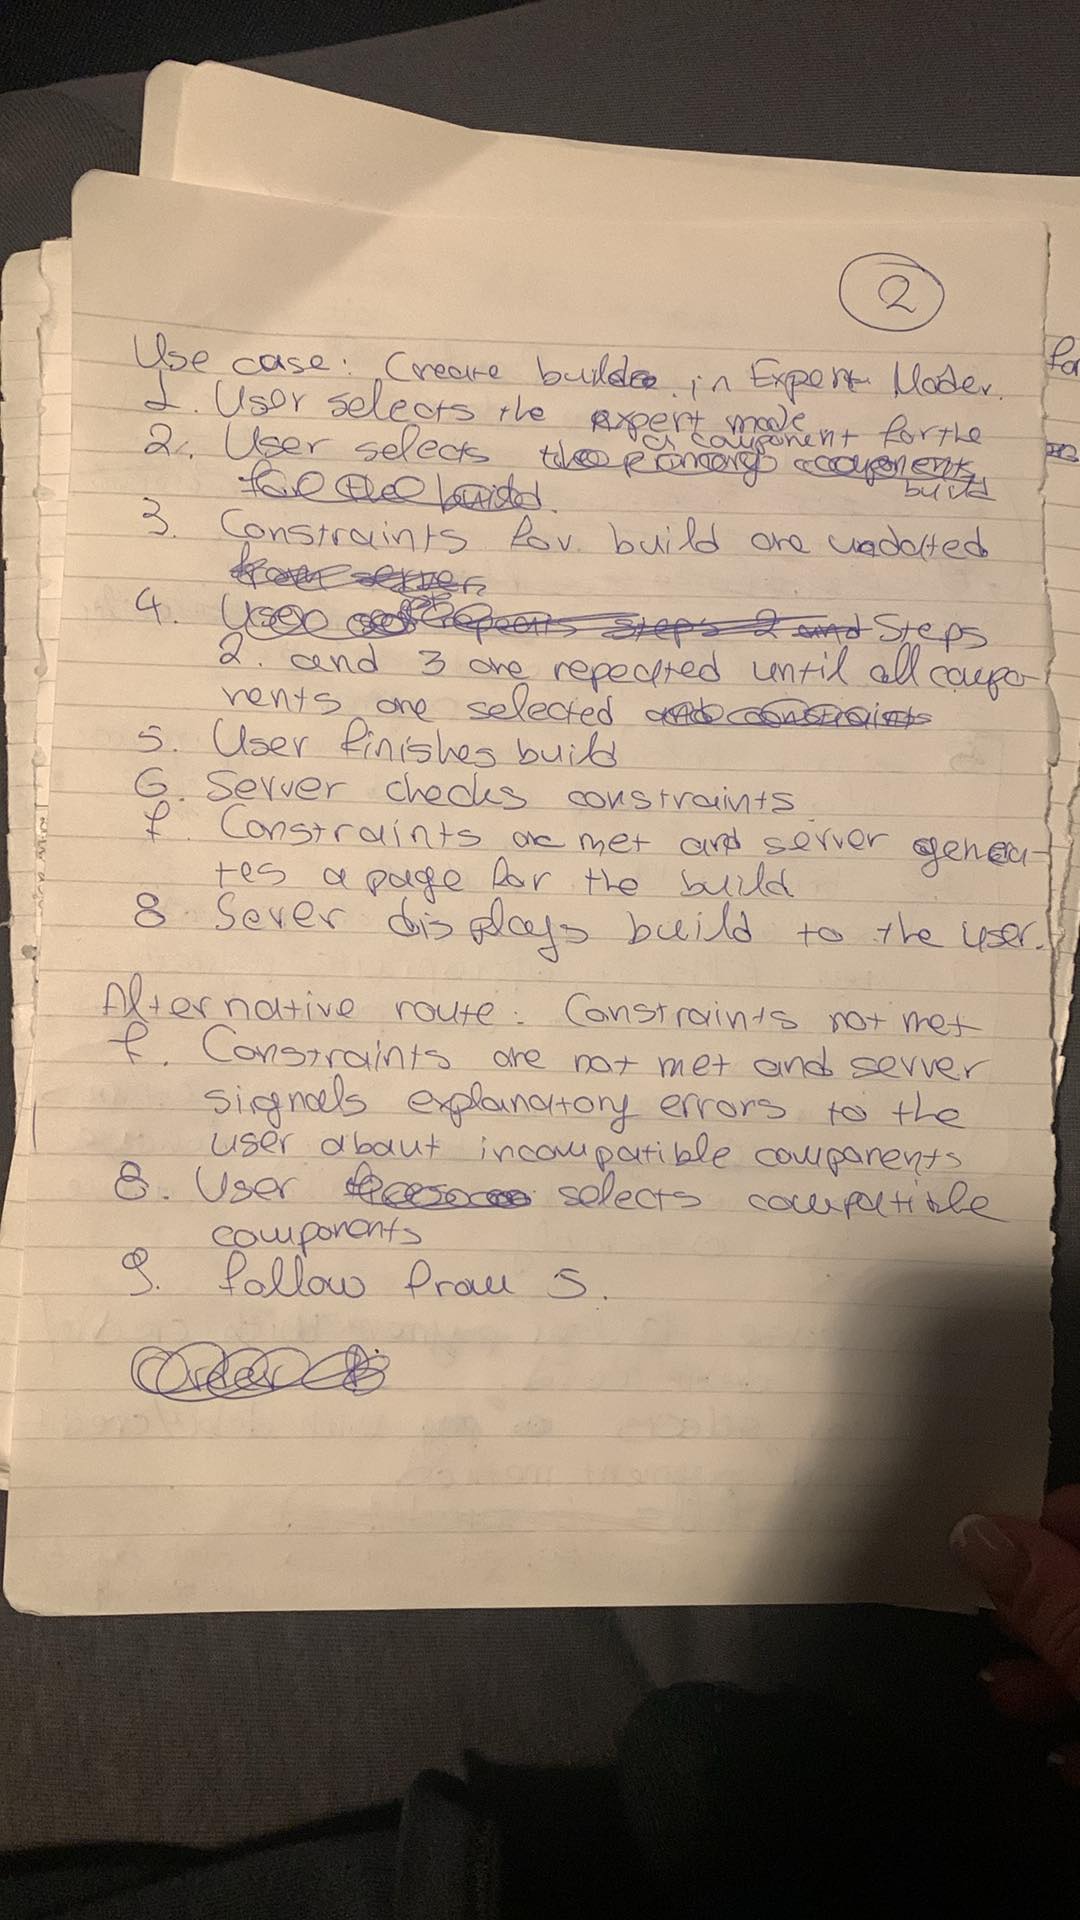 2
Use case: Create build in Expert Mode.
1. User selects the expert mode
2. User selects a component for the
build
3. Constraints for build are updated
4. Steps
2. and 3 are repeated until all compo-
nents are selected
5. User finishes build
6. Server checks constraints
7. Constraints are met and server genera-
tes a page for the build
8 Sever displays build to the user.
Alternative route: Constraints not met
7. Constraints are not met and server
signals explanatory errors to the
user about incompatible components
8. User selects compatible
components
9. follow from 5.